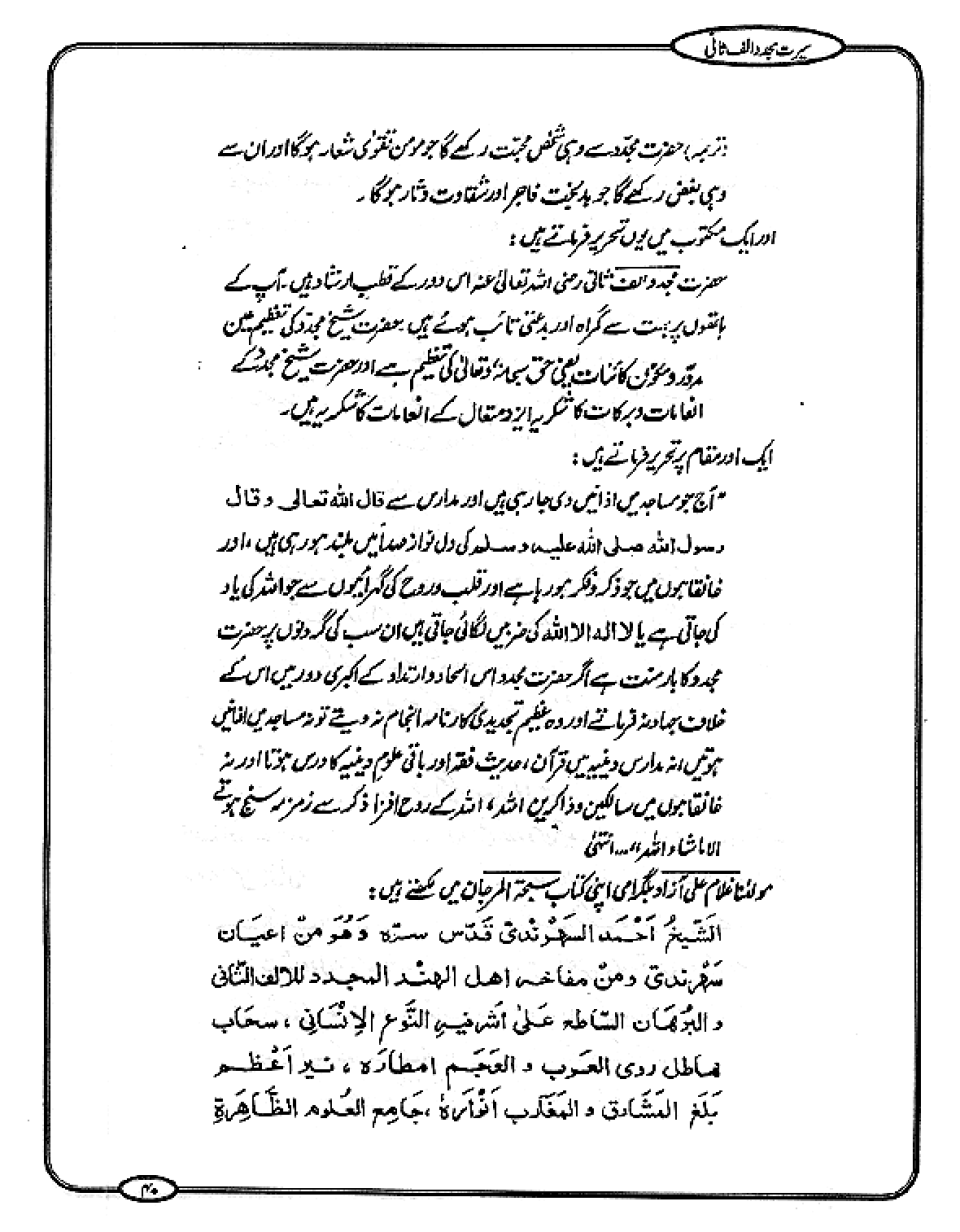 سیرت مجدد الف ثانی
(ترجمہ) حضرت مجدّد سے وہی شخص محبت رکھے گا جو مومن تقوٰی شعار ہوگا اور ان سے
وہی بغض رکھے گا جو بدبخت فاجر اور شقاوت دثار ہوگا۔
اور ایک مکتوب میں یوں تحریر فرماتے ہیں:
حضرت مجدد الف ثانی رضی اللہ تعالیٰ عنہ اس دور کے قطب ارشاد ہیں۔ آپ کے
ہاتھوں پر بہت سے گمراہ اور بدعتی تائب ہوئے ہیں۔ حضرت شیخ مجدّد کی تعظیم عین
مدوّر و مکوّن کائنات یعنی حق سبحانہٗ وتعالیٰ کی تعظیم ہے اور حضرت شیخ مجدّد کے
انعامات و برکات کا شکریہ ایزد متعال کے انعامات کا شکریہ ہیں۔
ایک اور مقام پر تحریر فرماتے ہیں:
"آج جو مساجد میں اذانیں دی جا رہی ہیں اور مدارس سے قال اللہ تعالی و قال
رسول اللہ صلی اللہ علیہ وسلم کی دل نواز صدائیں بلند ہو رہی ہیں، اور
خانقاہوں میں جو ذکر و فکر ہو رہا ہے اور قلب و روح کی گہرائیوں سے جو اللہ کی یاد
کی جاتی ہے یا لا الہ الا اللہ کی ضربیں لگائی جاتی ہیں ان سب کی گردنوں پر حضرت
مجدد کا بار منت ہے اگر حضرت مجدد اس الحاد و ارتداد کے اکبری دور میں اس کے
خلاف جہاد نہ فرماتے اور وہ عظیم تجدیدی کارنامہ انجام نہ دیتے تو نہ مساجد میں اذانیں
ہوتیں، نہ مدارس دینیہ میں قرآن، حدیث فقہ اور باقی علوم دینیہ کا درس ہوتا اور نہ
خانقاہوں میں سالکین و ذاکرین اللہ، اللہ کے روح افزا ذکر سے زمزمہ سنج ہوتے
الا ماشاء اللہ"... انتہیٰ
مولانا غلام علی آزاد بلگرامی اپنی کتاب سبحۃ المرجان میں لکھتے ہیں:
الشَّیخُ اَحْمَد السهرندی قَدّس سرّه وَهُوَ منْ اعیَان
سَهْرندیّ ومنْ مفاخر اهل الهند المجدد للالف الثّانی
و البُرهَان السَّاطع عَلیٰ اَشرفیۃِ النَّوعِ الاِنْسَانِی، سحَاب
هاطل روی العَرب و العَجَم امطارَه، نیر اَعْظم
بَلَغ المشارق و المغارب اَنْوارَهٗ، جَامِع العُلوم الظَّاهِرَۃِ
۴۰